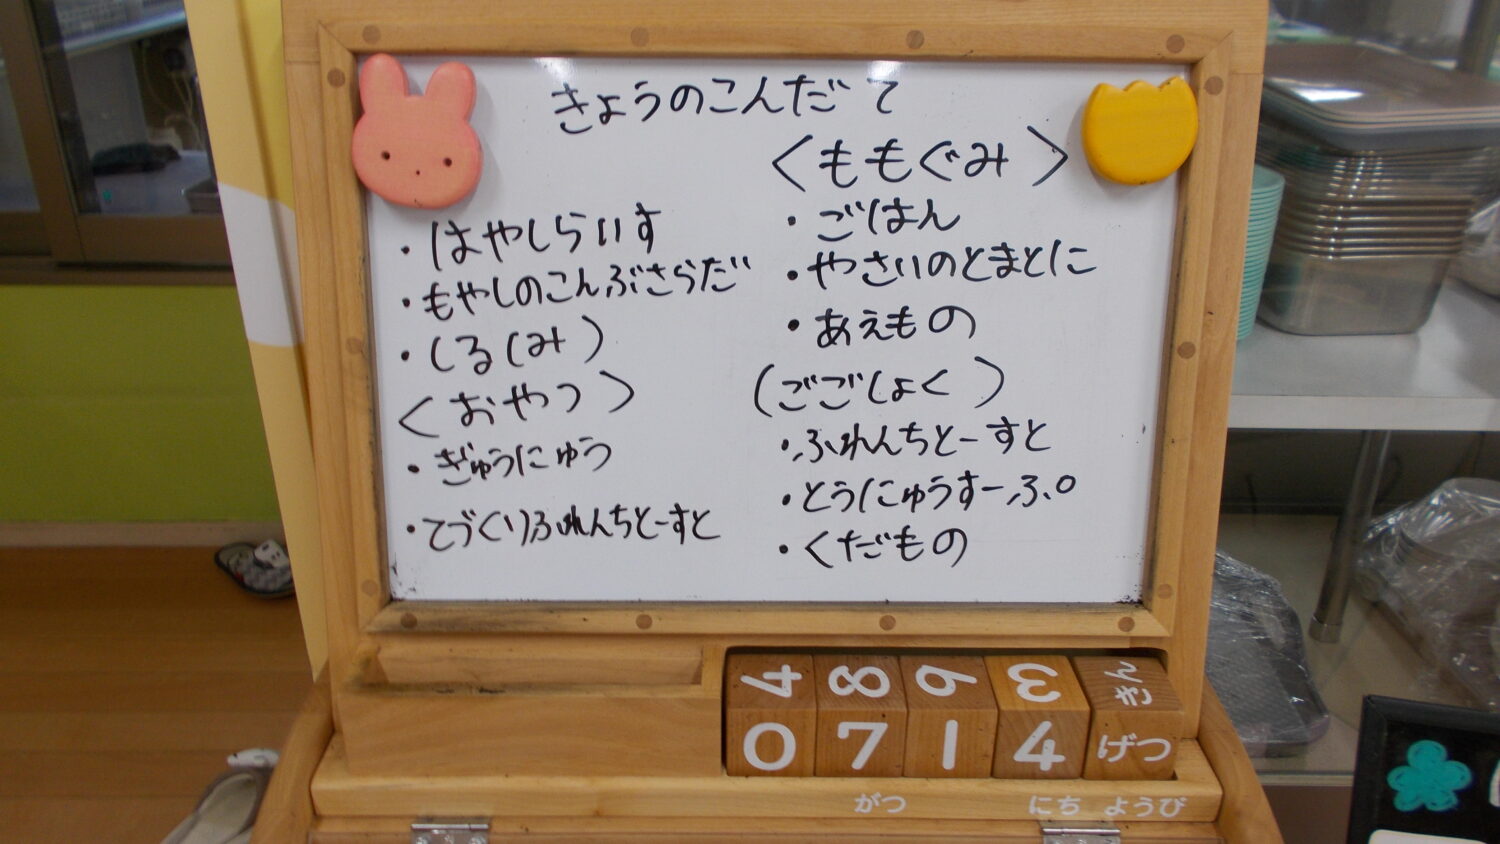 きょうのこんだて
・はやしらいす
・もやしのこんぶさらだ
・しる(み)
<おやつ>
・ぎゅうにゅう
・てづくりふれんちとーすと
<ももぐみ>
・ごはん
・やさいのとまとに
・あえもの
(ごごしょく)
・ふれんちとーすと
・とうにゅうすーぷ
・くだもの
4 8 9 3 きん
0 7 1 4 げつ
がつ にち ようび